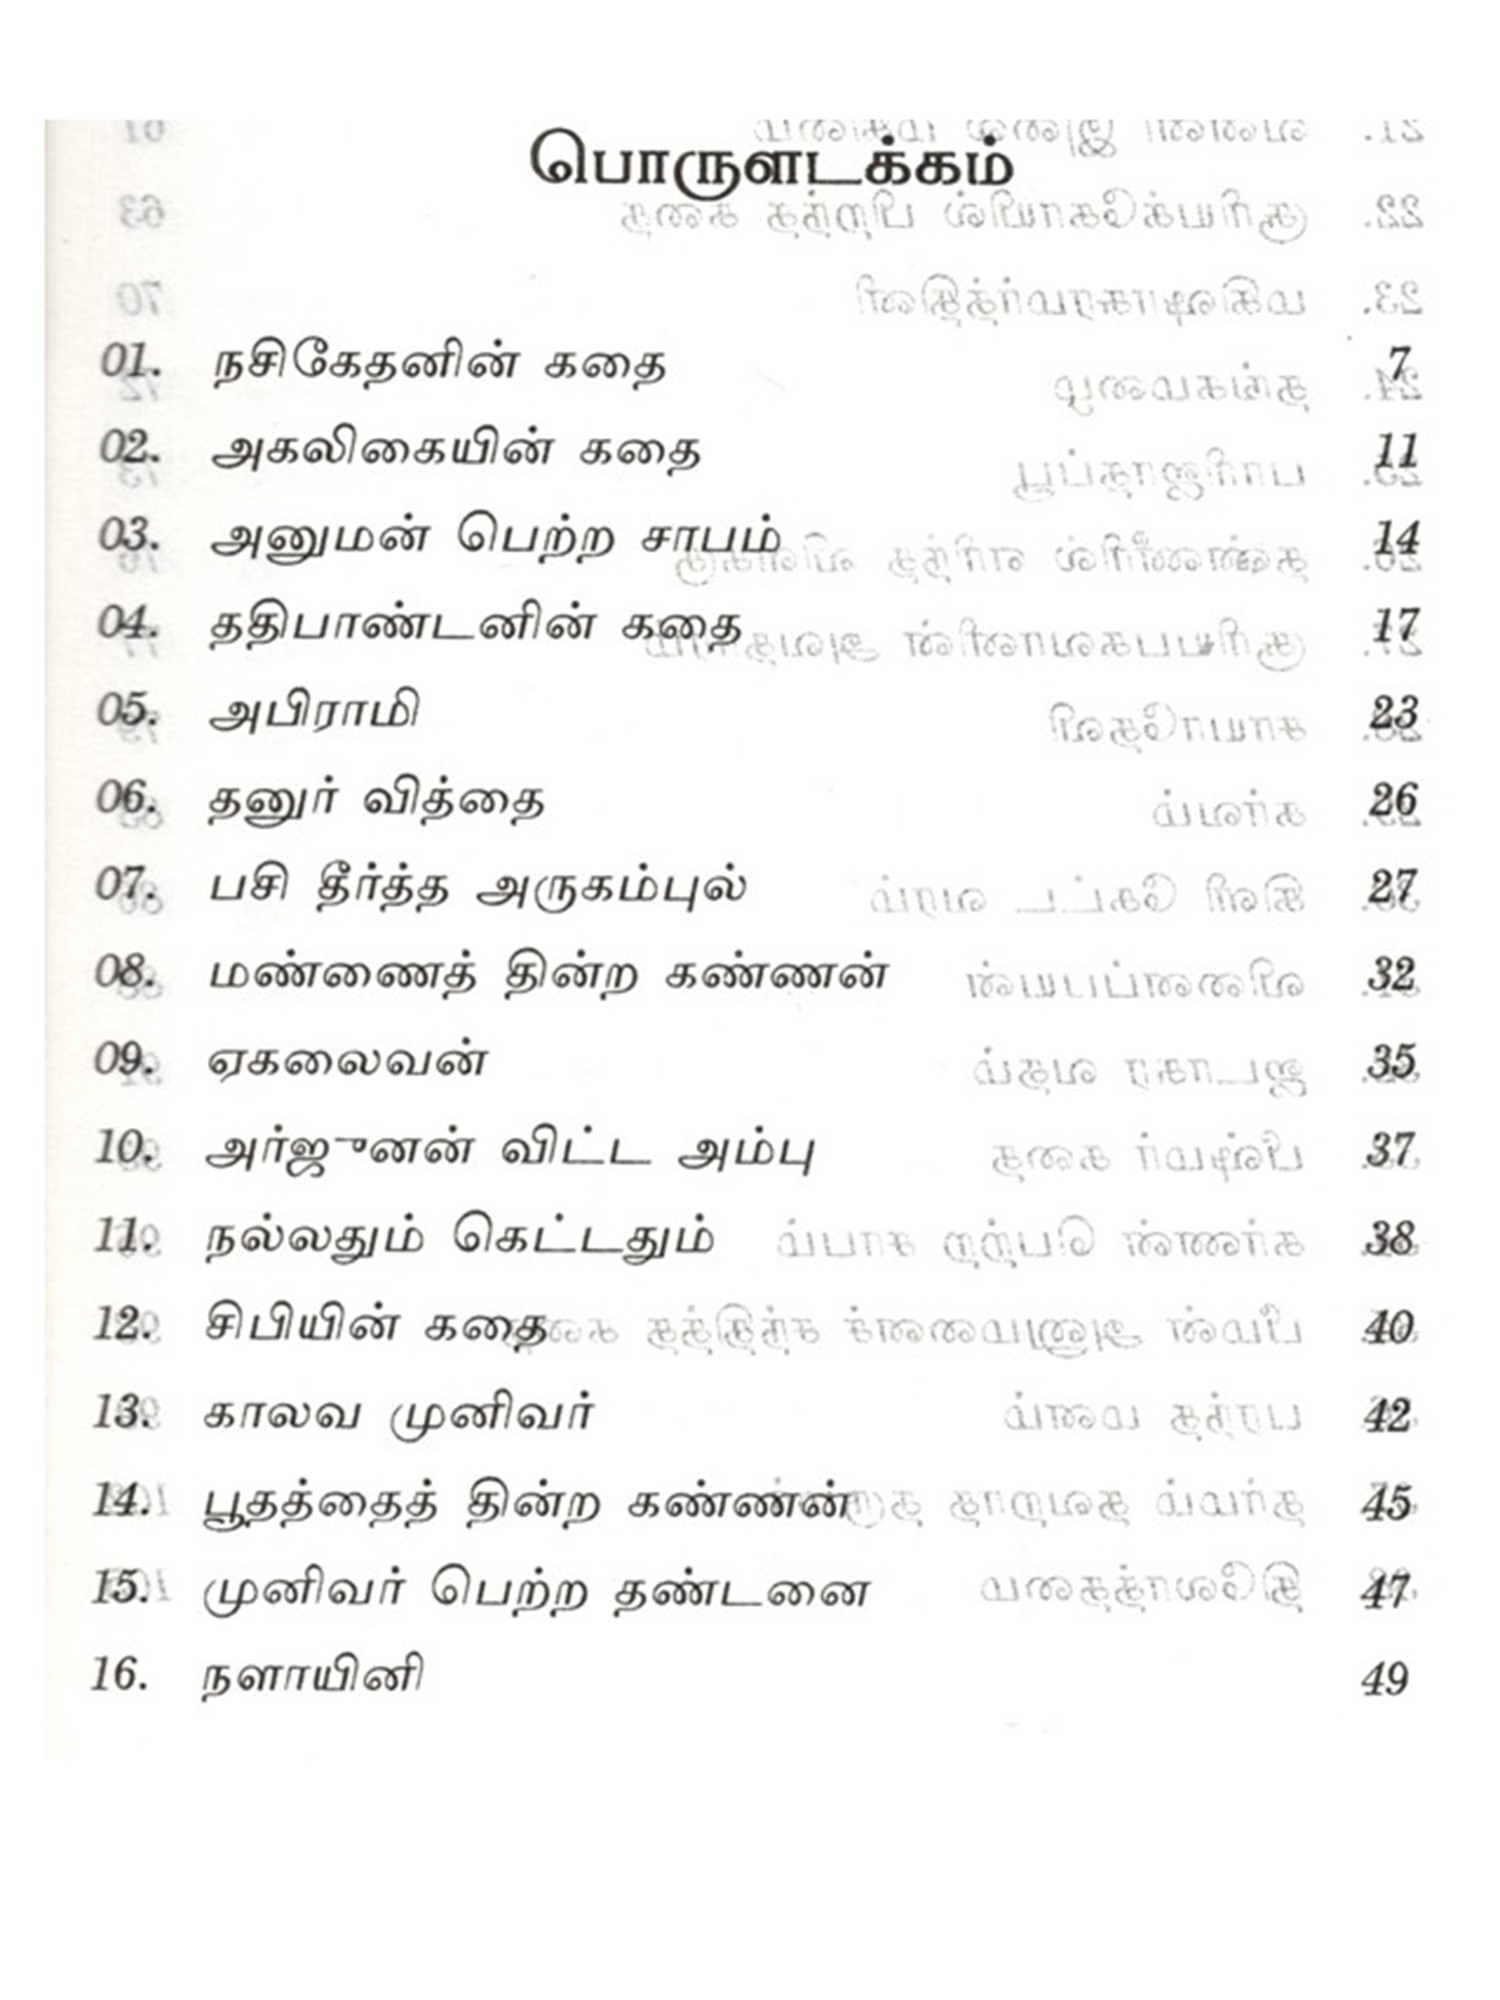 பொருளடக்கம்
01. நசிகேதனின் கதை 7
02. அகலிகையின் கதை 11
03. அனுமன் பெற்ற சாபம் 14
04. ததிபாண்டனின் கதை 17
05. அபிராமி 23
06. தனுர் வித்தை 26
07. பசி தீர்த்த அருகம்புல் 27
08. மண்ணைத் தின்ற கண்ணன் 32
09. ஏகலைவன் 35
10. அர்ஜுனன் விட்ட அம்பு 37
11. நல்லதும் கெட்டதும் 38
12. சிபியின் கதை 40
13. காலவ முனிவர் 42
14. பூதத்தைத் தின்ற கண்ணன் 45
15. முனிவர் பெற்ற தண்டனை 47
16. நளாயினி 49